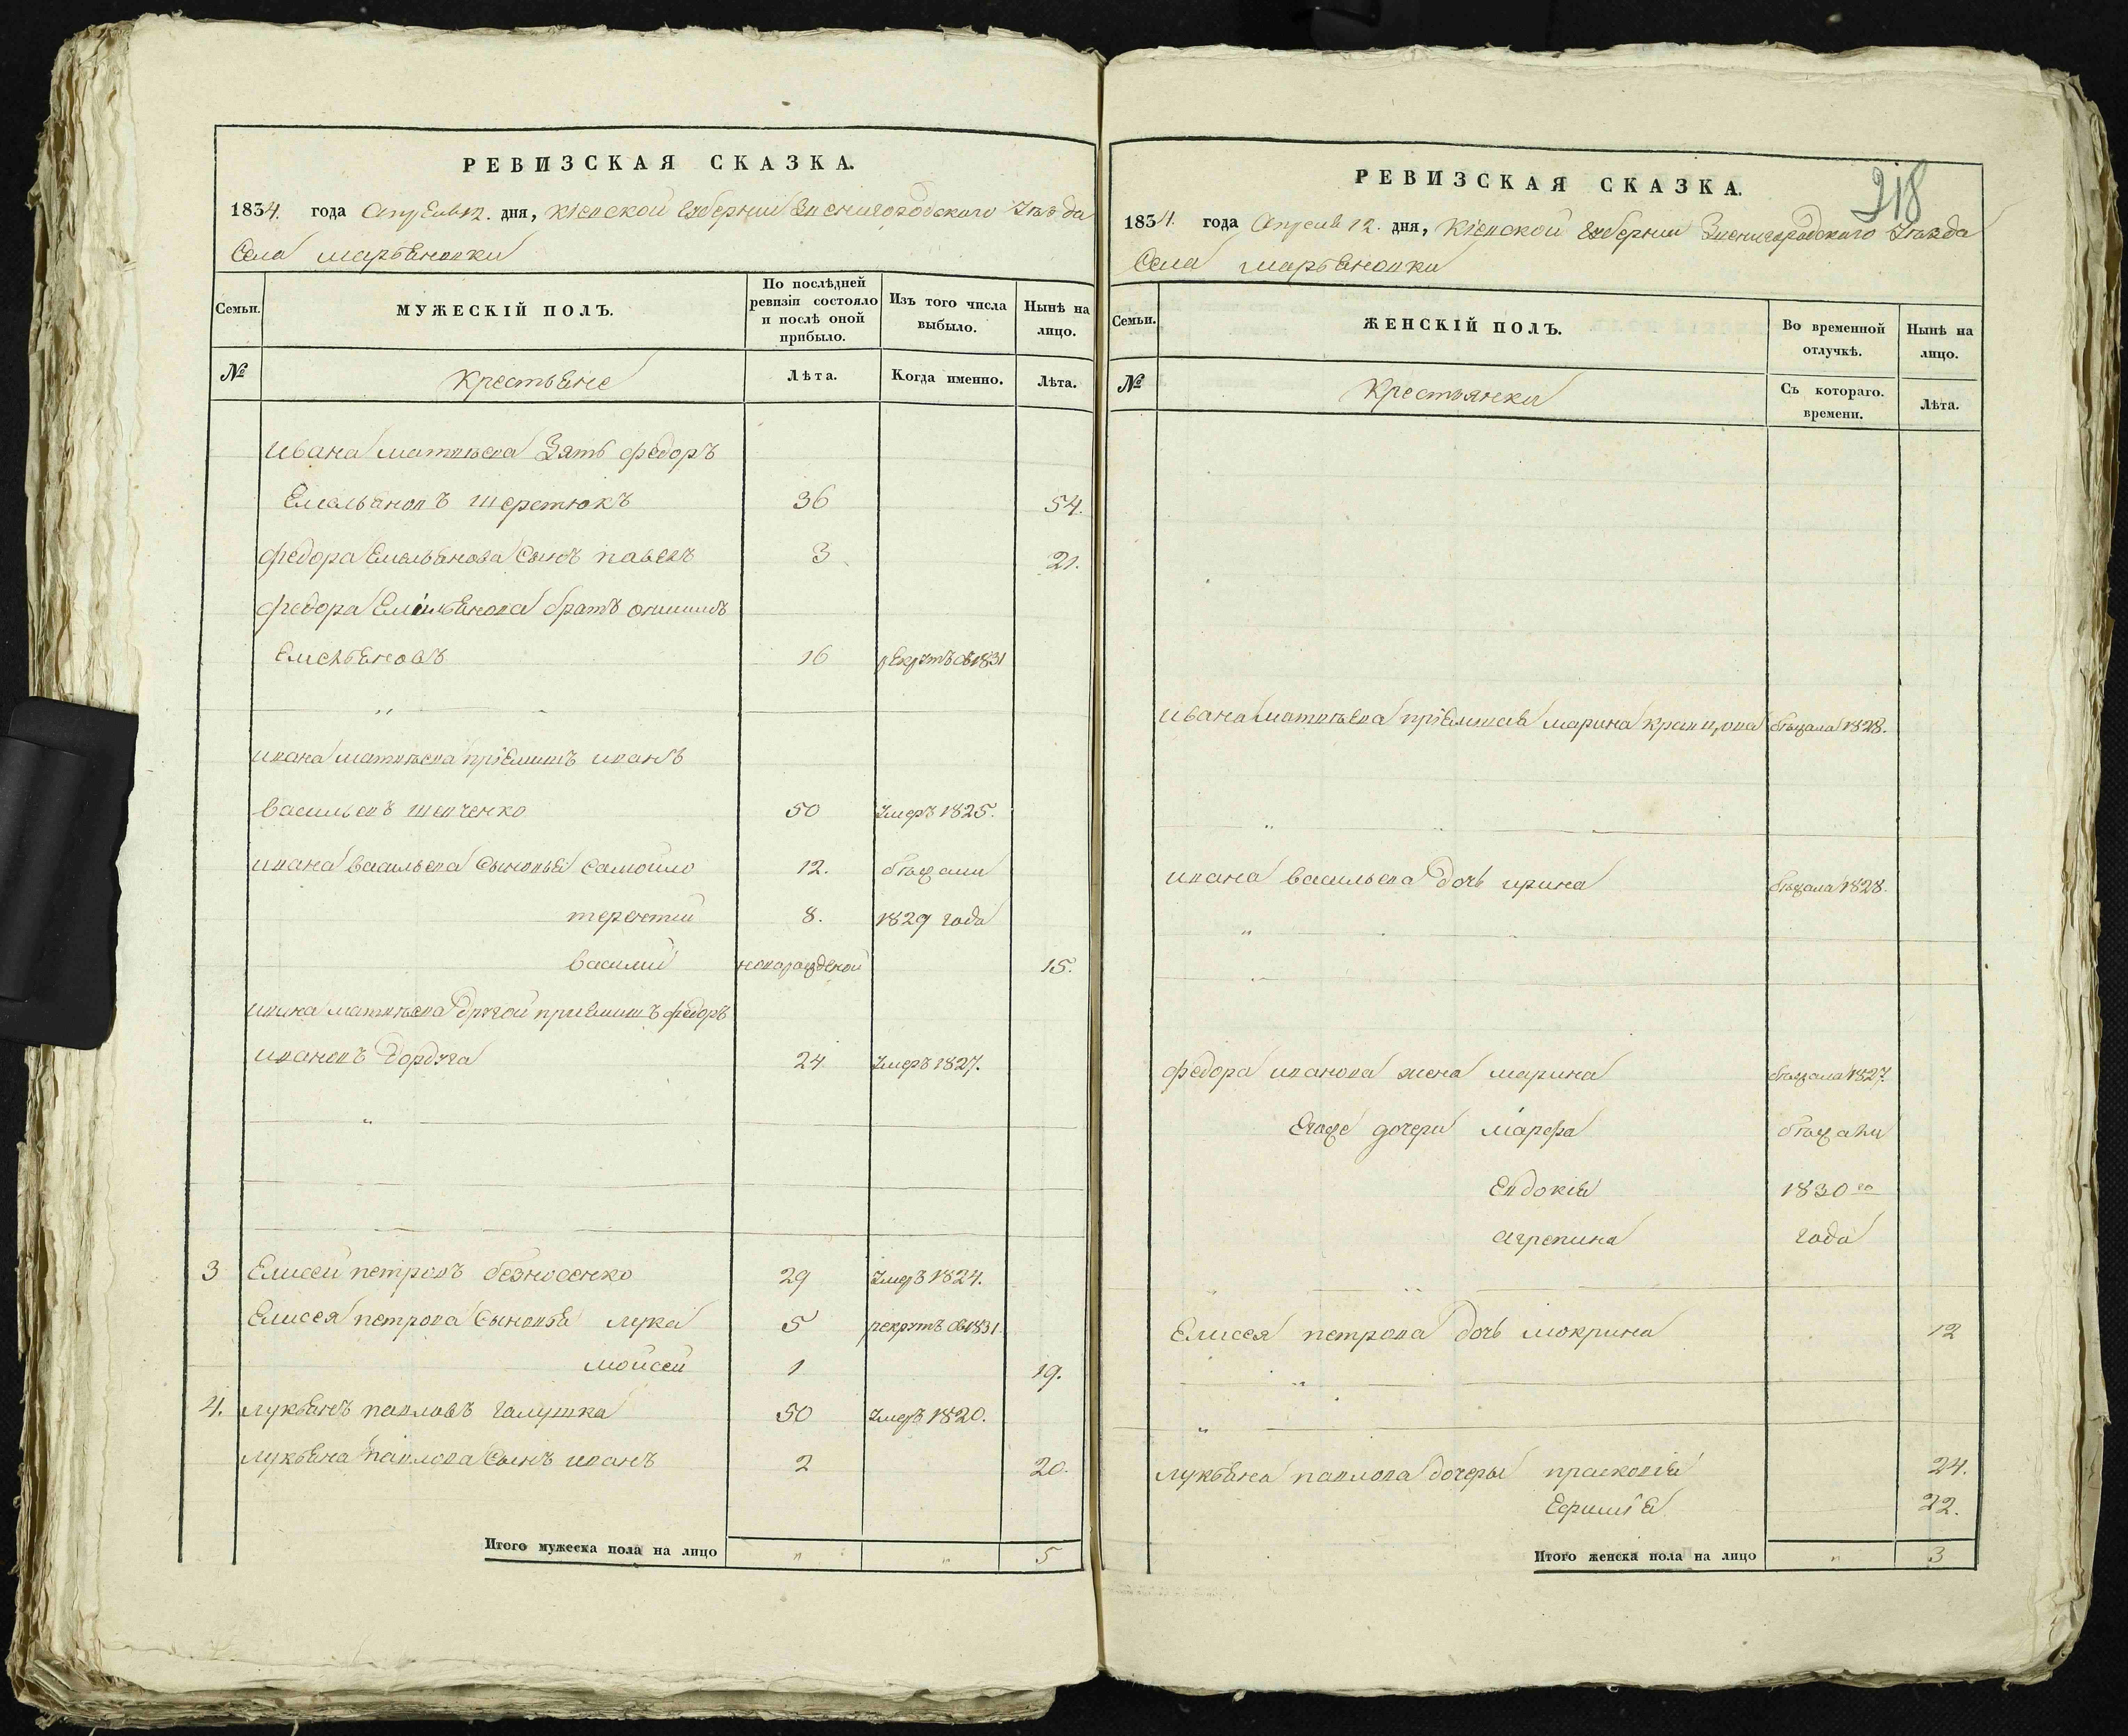 РЕВИЗСКАЯ СКАЗКА.
1834. года Апреля 12. дня, Кіевской Губерніи Звенигородского Уѣзда
Села Марьяновки
Семьи.
МУЖЕСКІЙ ПОЛЪ.
По послѣдней ревизіи состояло и послѣ оной прибыло.
Изъ того числа выбыло.
Нынѣ на лицо.
№
Крестьяне
Лѣта.
Когда именно.
Лѣта.
Ивана Матвѣева Зять Федоръ
Емельяновъ Шеретюкъ 36 54.
Федора Емельянова Сынъ Павелъ 3 21.
Федора Емельянова братъ
Емельяновъ 16 рекрутъ въ 1831
Ивана Матвѣева пріемишъ Иванъ
Васильевъ Шевченко 50 Умеръ 1825.
Ивана Васильева Сыновья Самойло 12. бѣжали
терентий 8. 1829 года
Василий новорожденой 15.
Ивана Матвѣева Другой приемишъ Федоръ
Ивановъ Дордуга 24 Умеръ 1827.
3 Елисей Петровъ безносенко 29 Умеръ 1824.
Елисея Петрова Сыновья Лука 5 рекрутъ въ 1831
Мойсей 1 19.
4. Лукьянъ Павловъ галушка 50 Умеръ 1820.
Лукьяна Павлова Сынъ Иванъ 2 20.
Итого мужеска пола на лицо " " 5
218
РЕВИЗСКАЯ СКАЗКА.
1834. года Апреля 12. дня, Кіевской Губерніи Звенигородского Уѣзда
Села Марьяновки
Семьи.
ЖЕНСКІЙ ПОЛЪ.
Во временной отлучкѣ.
Нынѣ на лицо.
№
Крестьянки
Съ котораго. времени.
Лѣта.
Ивана Матвѣева пріемшая Марина Кравцова бѣжала 1828.
Ивана Васильева Дочь Ирина бѣжала 1828.
Федора Иванова жена Марина бѣжала 1827.
Егоже дочери Марфа бѣжали
Евдокія 1830 го
Агрепина года
Елисея Петрова Дочь Мокрина 12
Лукьяна Павлова дочеры Прасковія 24.
Ефимія 22.
Итого женска пола на лицо " 3